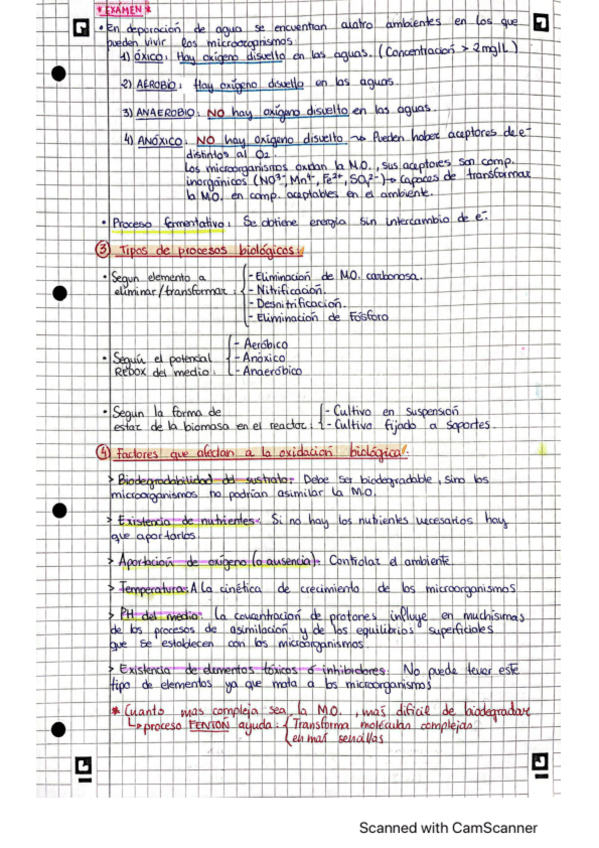 * EXÁMEN *
• En depuración de agua se encuentran cuatro ambientes en los que
pueden vivir los microorganismos:
1) ÓXICO: Hay oxígeno disuelto en las aguas. (Concentración > 2mg/L)
2) AEROBIO: Hay oxígeno disuelto en las aguas.
3) ANAEROBIO: NO hay oxígeno disuelto en las aguas.
4) ANÓXICO: NO hay oxígeno disuelto → Pueden haber aceptores de e-
distintos al O2.
Los microorganismos oxidan la M.O., sus aceptores son comp.
inorgánicos (NO3-, Mn4+, Fe3+, SO4 2-) → Capaces de transformar
la M.O. en comp. aceptables en el ambiente.
• Proceso fermentativo: Se obtiene energía sin intercambio de e-.
③ Tipos de procesos biológicos:
• Según elemento a
eliminar/transformar:
- Eliminación de M.O. carbonosa.
- Nitrificación.
- Desnitrificación.
- Eliminación de Fósforo
• Según el potencial
REDOX del medio:
- Aeróbico
- Anóxico
- Anaeróbico
• Según la forma de
estar de la biomasa en el reactor:
- Cultivo en suspensión
- Cultivo fijado a soportes.
④ Factores que afectan a la oxidación biológica:
> Biodegradabilidad del sustrato: Debe ser biodegradable, sino los
microorganismos no podrían asimilar la M.O.
> Existencia de nutrientes: Si no hay los nutrientes necesarios hay
que aportarlos.
> Aportación de oxígeno (o ausencia): Controlar el ambiente.
> Temperatura: A la cinética de crecimiento de los microorganismos
> PH del medio: La concentración de protones influye en muchísimas
de los procesos de asimilación y de los equilibrios superficiales
que se establecen con los microorganismos
> Existencia de elementos tóxicos ó inhibidores: No puede tener este
tipo de elementos ya que mata a los microorganismos
* Cuanto mas compleja sea la M.O., más difícil de biodegradar
↳ proceso FENTON ayuda: Transforma moléculas complejas
en más sencillas
Scanned with CamScanner